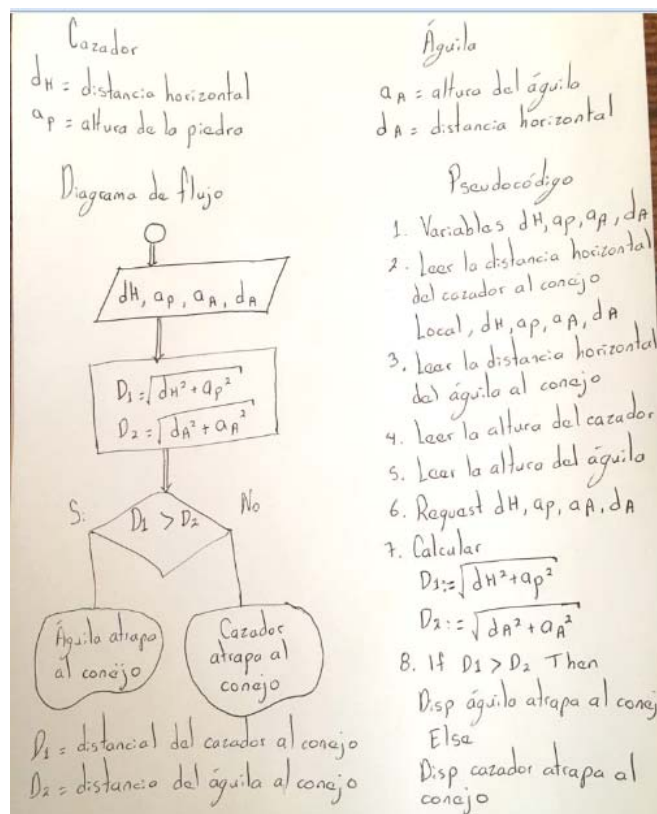 Cazador
dH = distancia horizontal
aP = altura de la piedra
Diagrama de flujo
dH, aP, aA, dA
D1:=√dH²+aP²
D2:=√dA²+aA²
Si
D1 > D2
No
Águila atrapa
al conejo
Cazador
atrapa al
conejo
D1 = distancial del cazador al conejo
D2 = distancia del águila al conejo
Águila
aA = altura del águila
dA = distancia horizontal
Pseudocódigo
1. Variables dH, aP, aA, dA
2. Leer la distancia horizontal
del cazador al conejo
Local, dH, aP, aA, dA
3. Leer la distancia horizontal
del águila al conejo
4. Leer la altura del cazador
5. Leer la altura del águila
6. Request dH, aP, aA, dA
7. Calcular
D1:=√dH²+aP²
D2:=√dA²+aA²
8. If D1 > D2 Then
Disp águila atrapa al conej
Else
Disp cazador atrapa al
conejo